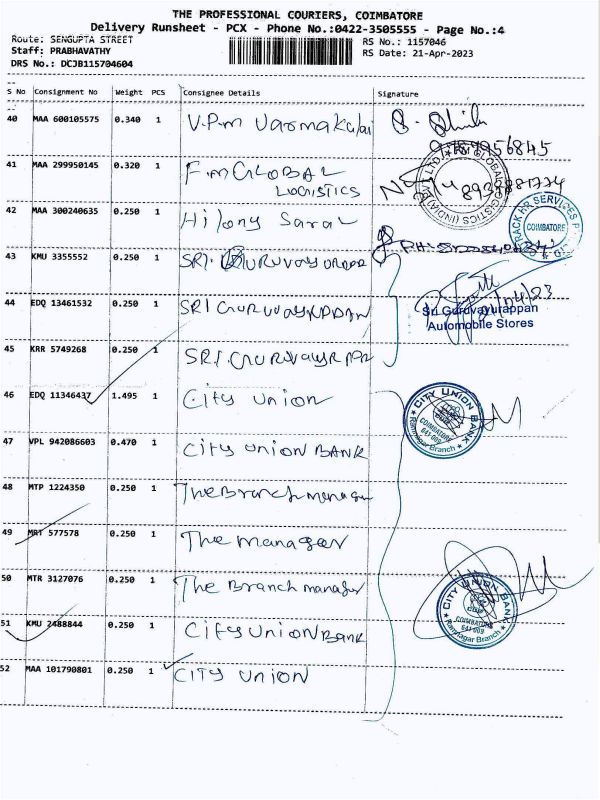 THE PROFESSIONAL COURIERS, COIMBATORE
Delivery Runsheet - PCX - Phone No.:0422-3505555 - Page No.:4
Route: SENGUPTA STREET
RS No.: 1157046
Staff: PRABHAVATHY
RS Date: 21-Apr-2023
DRS No.: DCJB115704604
S No Consignment No Weight PCS Consignee Details Signature
40 MAA 600105575 0.340 1 V.P.M Varmakalai
41 MAA 299950145 0.320 1 F.M GLOBAL
LOGISTICS
42 MAA 300240635 0.250 1 Hilony Saral
43 KMU 3355552 0.250 1 SRI.
44 EDQ 13461532 0.250 1 SRI
Sri Guruvayurappan
Automobile Stores
45 KRR 5749268 0.250 1 SRI.
46 EDQ 11346437 1.495 1 City union
CITY UNION BANK
COIMBATORE
641 009
Ramnagar Branch
47 VPL 942086603 0.470 1 City union BANK
48 MTP 1224350 0.250 1 The Branch manager
49 MRT 577578 0.250 1 The manager
50 MTR 3127076 0.250 1 The Branch manager
CITY UNION BANK
COIMBATORE
641 009
Ramnagar Branch
51 KMU 2488844 0.250 1 City union Bank
52 MAA 101790801 0.250 1 CITY UNION